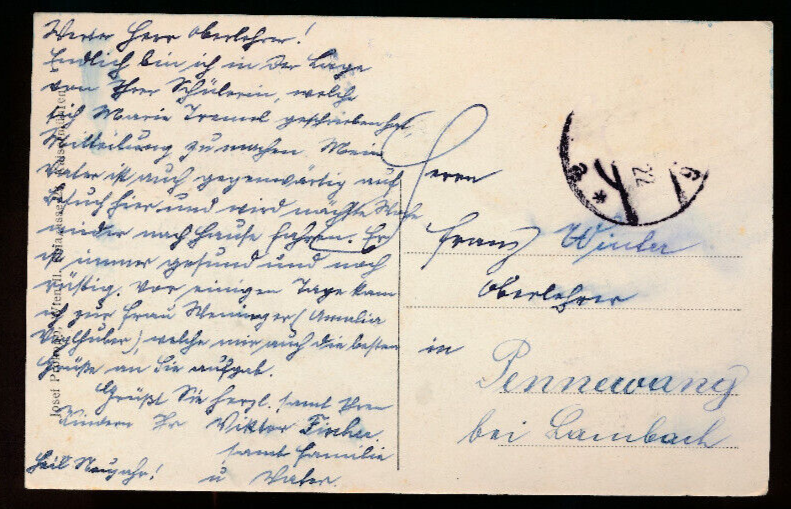 Werter Herr Oberlehrer!
Endlich bin ich in der Lage
von Ihrer Schülerin, welche
sich Marie Tremel geschrieben hat,
Mitteilung zu machen. Mein
Vater ist auch gegenwärtig auf
Besuch hier und wird nächste Woche
wieder nach Hause fahren. Er
ist immer gesund und noch
rüstig. Vor einigen Tage kam
ich zur Frau Weninger (Amalia
), welche mir auch die besten
Grüße an Sie aufgab.
Grüßt Sie herzl. samt Ihren
Kindern Ihr Viktor Fischer
samt Familie
u Vater.
Heil Neujahr!
Herrn
Franz Winter
Oberlehrer
in
Pennewang
bei Lambach
Josef Wien II.
22